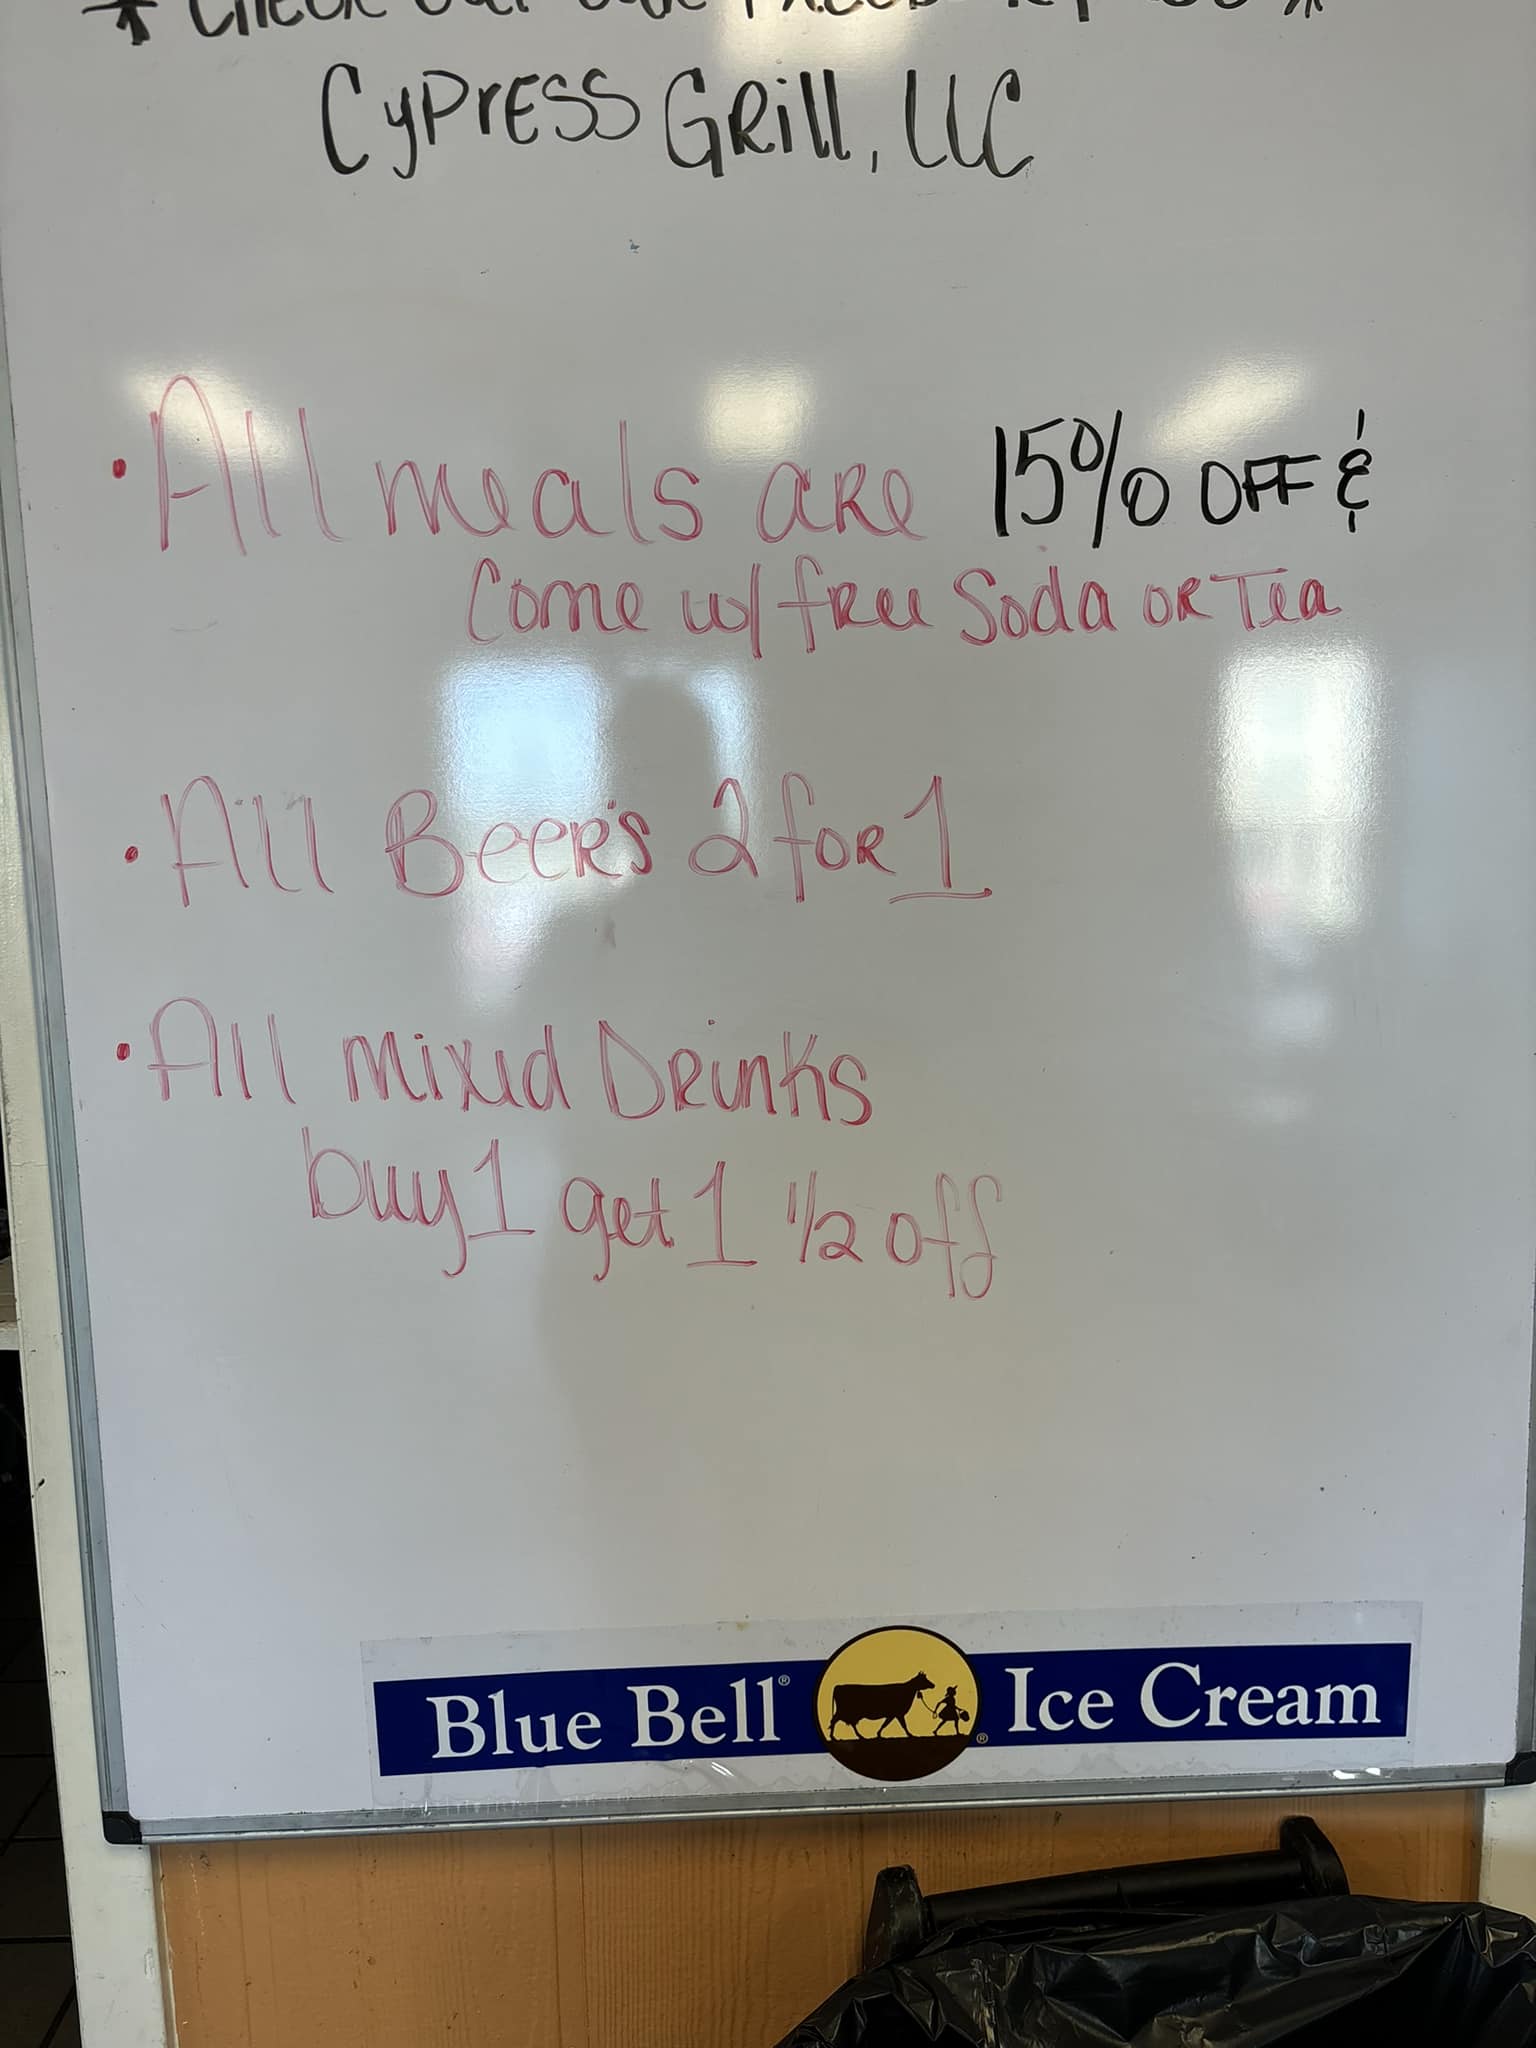 * Check out our
Cypress Grill, LLC
• All meals are 15% OFF &
Come w/ free Soda or Tea
• All Beer's 2 for 1
• All mixed Drinks
buy 1 get 1 1/2 off
Blue Bell® Ice Cream®